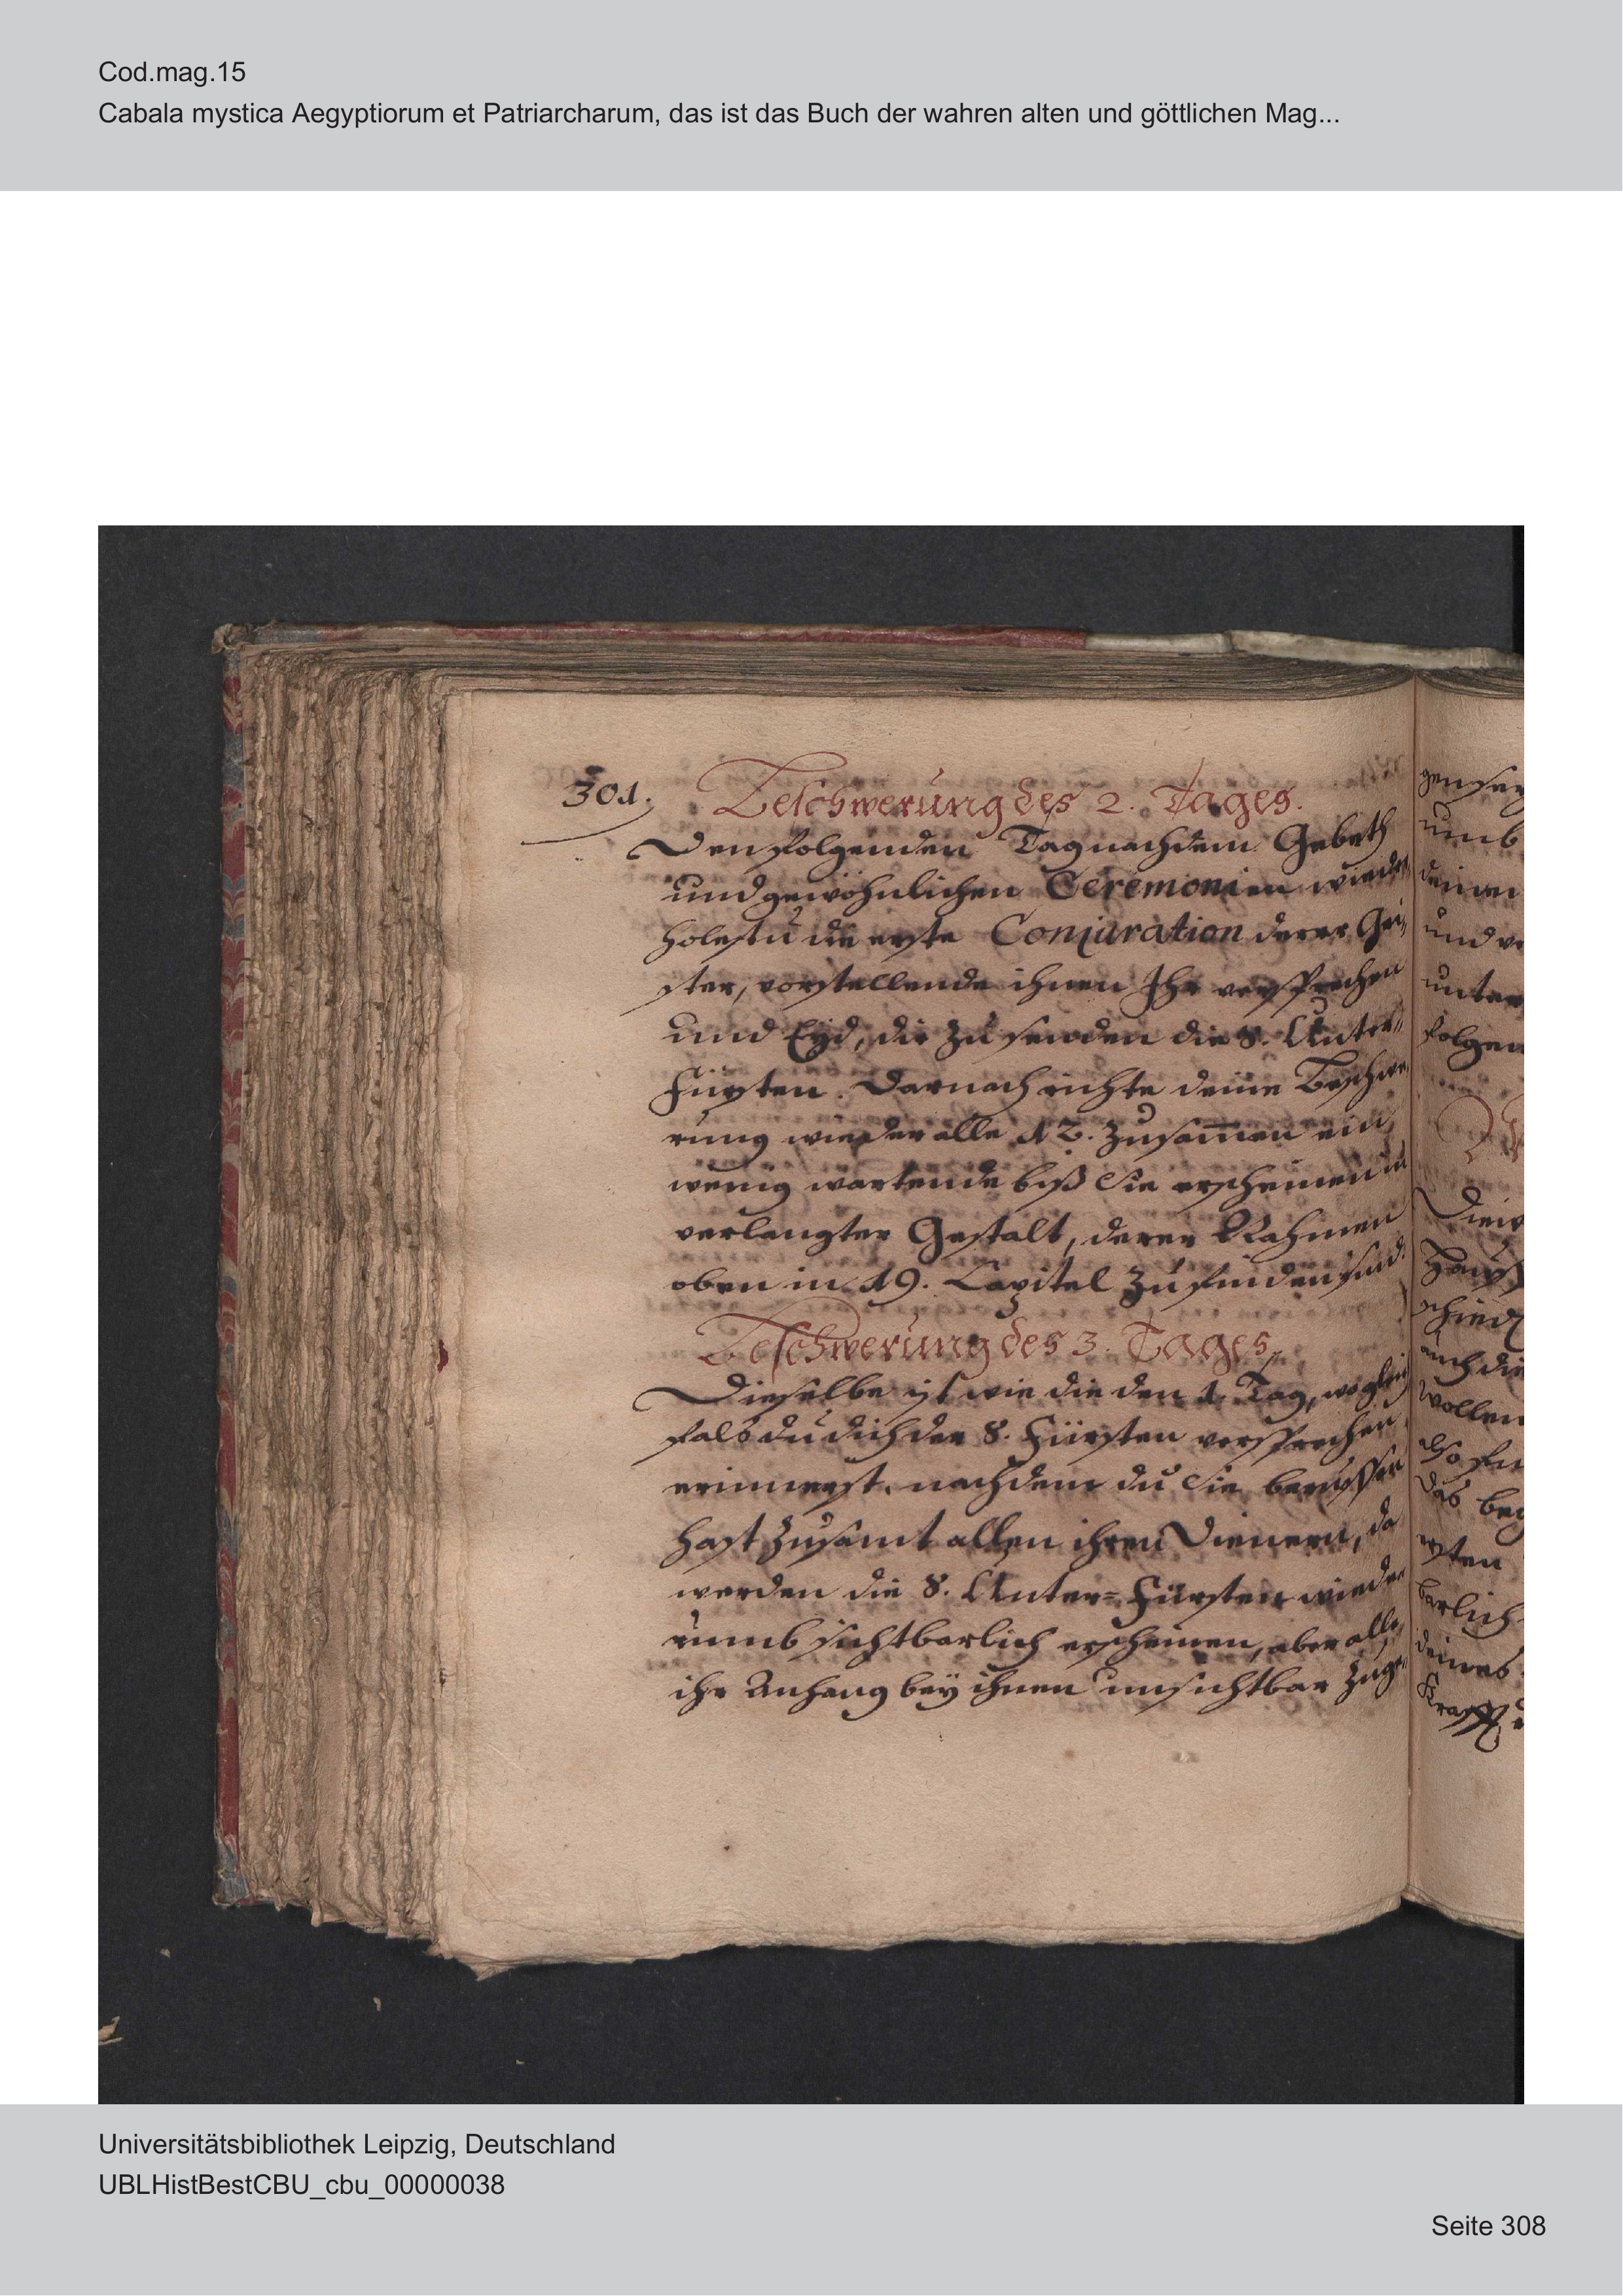 Cod.mag.15
Cabala mystica Aegyptiorum et Patriarcharum, das ist das Buch der wahren alten und göttlichen Mag...
301.
Beschwerung des 2. Tages.
Den folgenden Tag nach dem Gebeth
und gewöhnlichen Ceremonien wieder
holestu die erste Conjuration derer Gei,
ster, vorstellende ihnen Ihr versprechen
und Eyd, dir zu senden die 8. Unter=
Fürsten. Darnach richte deine Beschwe,
rung wieder alle 12. zusam̄en ein,
wenig wartende biß Sie erscheinen in
verlangter Gestalt, derer Nahmen
oben in 19. Capitel zu finden sind.
Beschwerung des 3. Tages.
Dieselbe ist wie die den 1. Tag, wo gleich
fals du dich der 8. Fürsten versprechen
erinnerst. nachdem du Sie beruffen
hast zusamt allen ihren Dienern, da
werden die 8. Unter=Fürsten wiede
rumb sichtbarlich erscheinen, aber alle
ihr Anhang bey ihnen unsichtbar zuge=
umb
deinen
und
unter
folgen
auch die
wollen
das
barlich
deines
Krafft
Universitätsbibliothek Leipzig, Deutschland
UBLHistBestCBU_cbu_00000038
Seite 308